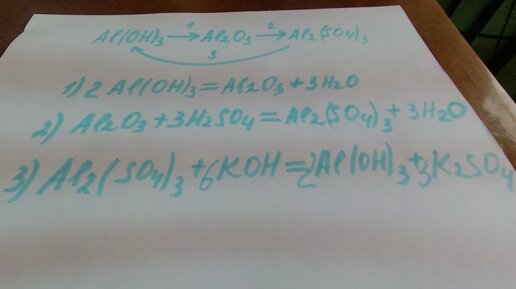 Al(OH)₃ →¹ Al₂O₃ →² Al₂(SO₄)₃
3
1) 2Al(OH)₃ = Al₂O₃ + 3H₂O
2) Al₂O₃ + 3H₂SO₄ = Al₂(SO₄)₃ + 3H₂O
3) Al₂(SO₄)₃ + 6KOH = 2Al(OH)₃ + 3K₂SO₄